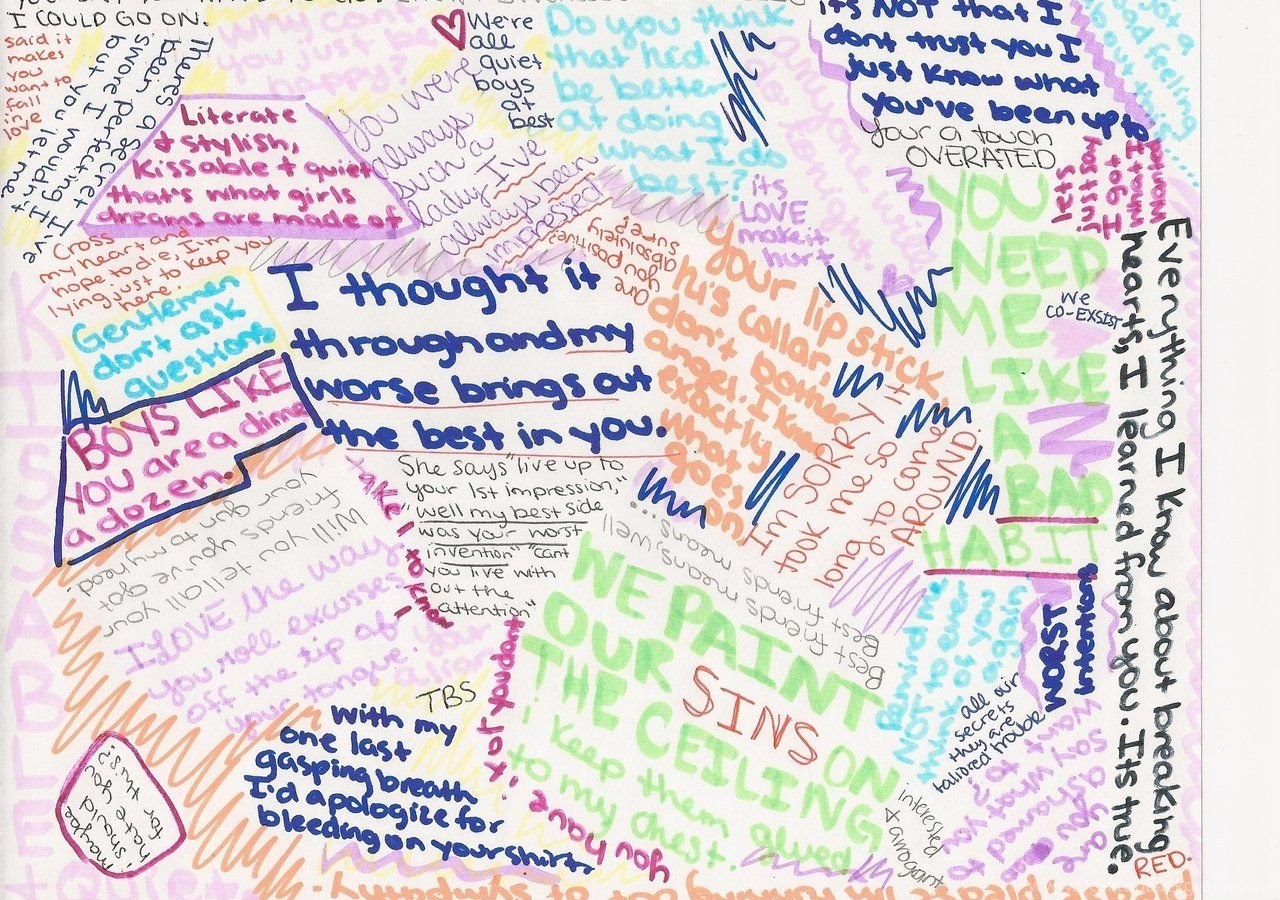 I COULD GO ON.
said it
makes
you
want to
fall
in
love
Theres a secret I've
been perfecting It.
swore I wouldn't
but you let me
Why cant
you just be
happy?
Literate
+ stylish,
kissable + quiet
that's what girls
dreams are made of
You were
always
such a
lady I've
always been
impressed
We're
all
quiet
boys
at
best
Do you think
that hed
be better
at doing
what I do
best?
its
LOVE
make it
hurt
its NOT that I
dont trust you I
just know what
you've been up to
your a touch
OVERATED
lets
just say
I got
what I
wanted
YOU
NEED
ME
LIKE
A
BAD
HABIT
We
CO-EXSIST
Everything I Know about breaking
hearts, I learned from you. Its true.
RED.
Cross
my heart and
hope to die, I'm
lying just to keep you
here.
Gentlemen
don't ask
questions
BOYS LIKE
you are a dime
a dozen.
I thought it
through and my
worse brings out
the best in you.
Are
you positive?
absolutely
sure?
your lip stick
his collar.
don't bother
angel. I know
exactly
what
goes
on
I'm SORRY it
took me so
long to come
AROUND
She says "live up to
your 1st impression,"
"well my best side
was your worst
invention" "cant
you live with
out the
attention"
Will you tell all your
friends you've got
your gun to my head
I LOVE the way
you roll excuses
off the tip of
your tongue.
TBS
with my
one last
gasping breath
I'd apologize for
bleeding on your shirt
Best friends means,
Best friends means, well,
means...
WE PAINT
OUR SINS ON
THE CEILING
I keep them glued
to my chest.
WORST
intentions
all our
secrets
they are
tailored trouble
are you
ashamed to
say what you
want to?
interested
+ arrogant
maybe
I should
hate you
for this!
KISSABLE
+ QUIET
please, please I'm running out of sympathy